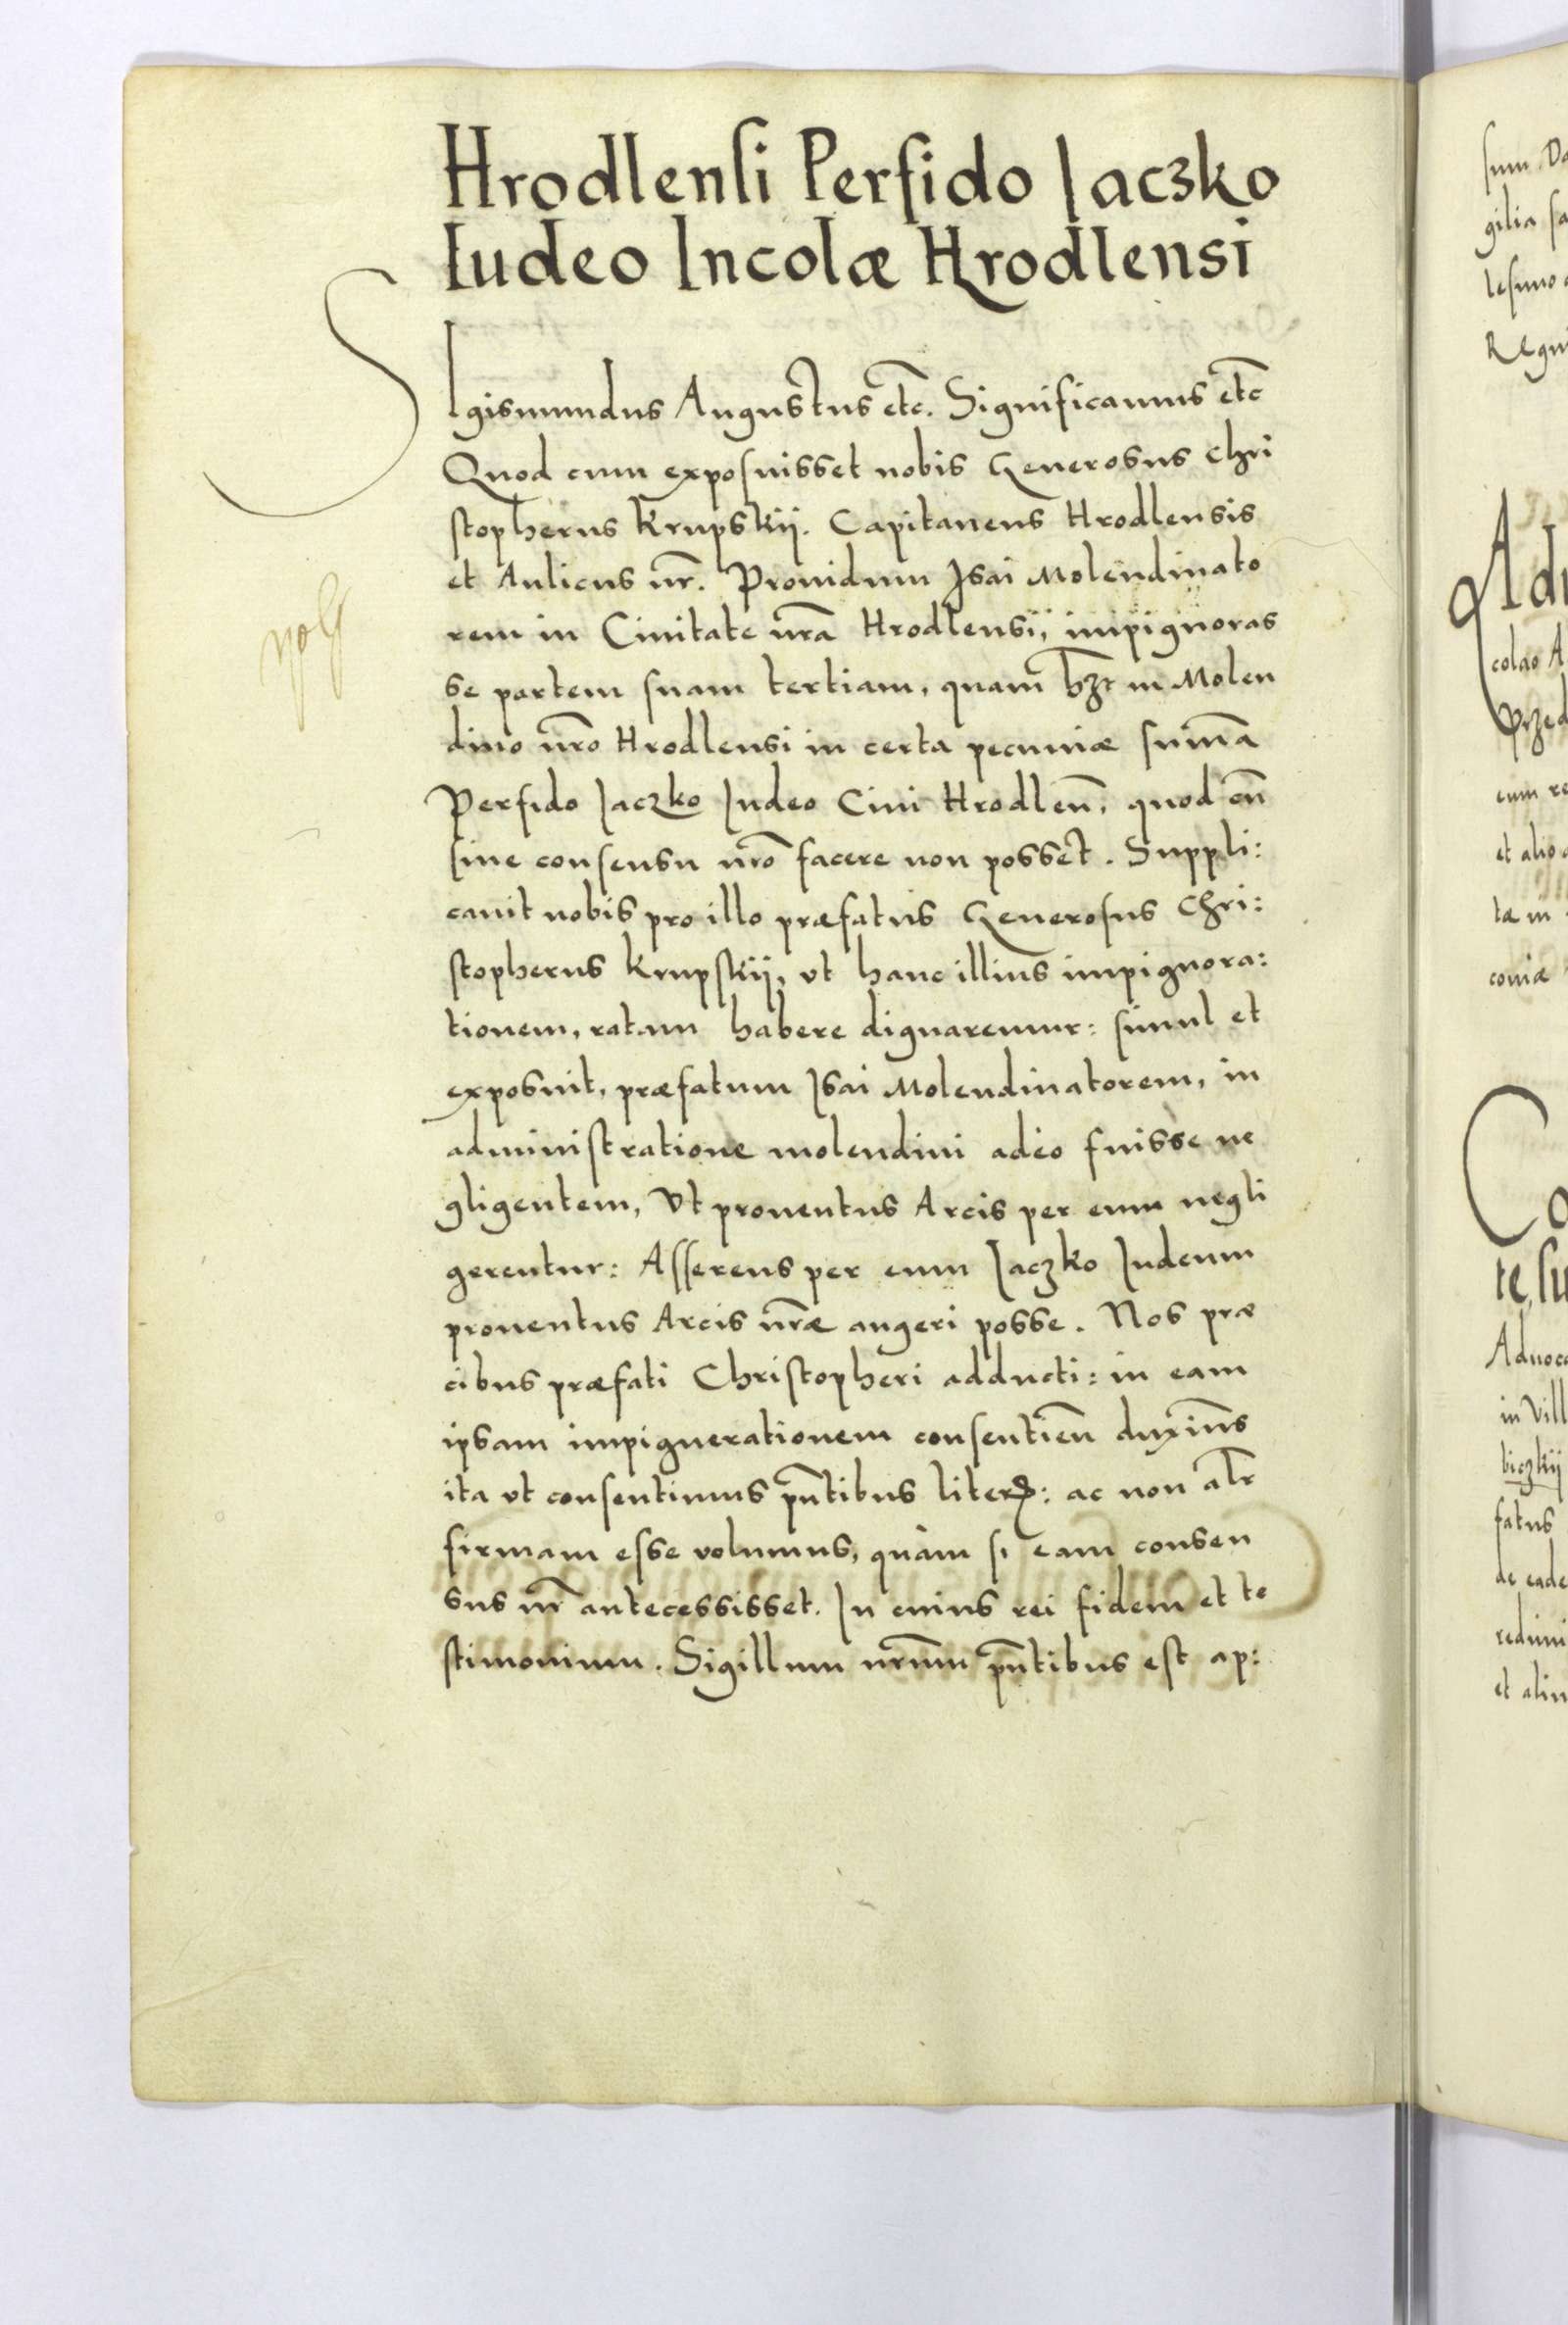 Hrodlensi Perfido Jaczko
Iudeo Incolæ Hrodlensi
SIgismundus Augustus etc̄. Significamus etc̄
Quod cum exposuisset nobis Generosus Chri
stopherus Krupskij. Capitaneus Hrodlensis
et Aulicus nr̄. Prouidum Isai Molendinato
rem in Ciuitate nrā Hrodlensi, impignoras
se partem suam tertiam, quam hȝt in Molen
dino nrō Hrodlensi in certa pecuniæ sum̄a
Perfido Jaczko Judeo Ciui Hrodlen̄, quod cū
sine consensu nrō facere non posset. Suppli:
cauit nobis pro illo præfatus Generosus Chri:
stopherus Krupskij, vt hanc illius impignora:
tionem, ratam habere dignaremur: simul et
exposuit, præfatum Isai Molendinatorem, in
administratione molendini adeo fuisse ne
gligentem, Vt prouentus Arcis per eum negli
gerentur: Asserens per eum Jaczko Judeum
prouentus Arcis nrāe augeri posse. Nos præ
cibus præfati Christopheri adducti: in eam
ipsam impignerationem consentien̄ duxim̄s
ita vt consentimus pn̄tibus literꝭ: ac non alr̄
firmam esse volumus, quàm si eam consen
sus nr̄ antecessisset. In cuius rei fidem et te
stimonium. Sigillum nrūm pn̄tibus est ap:
sum
gilia
Regni
colao A
eum re
et alio
tæ in
coniæ
te
Aduoca
in Vill
biczkij
fatus
de eade
redimi
et alin